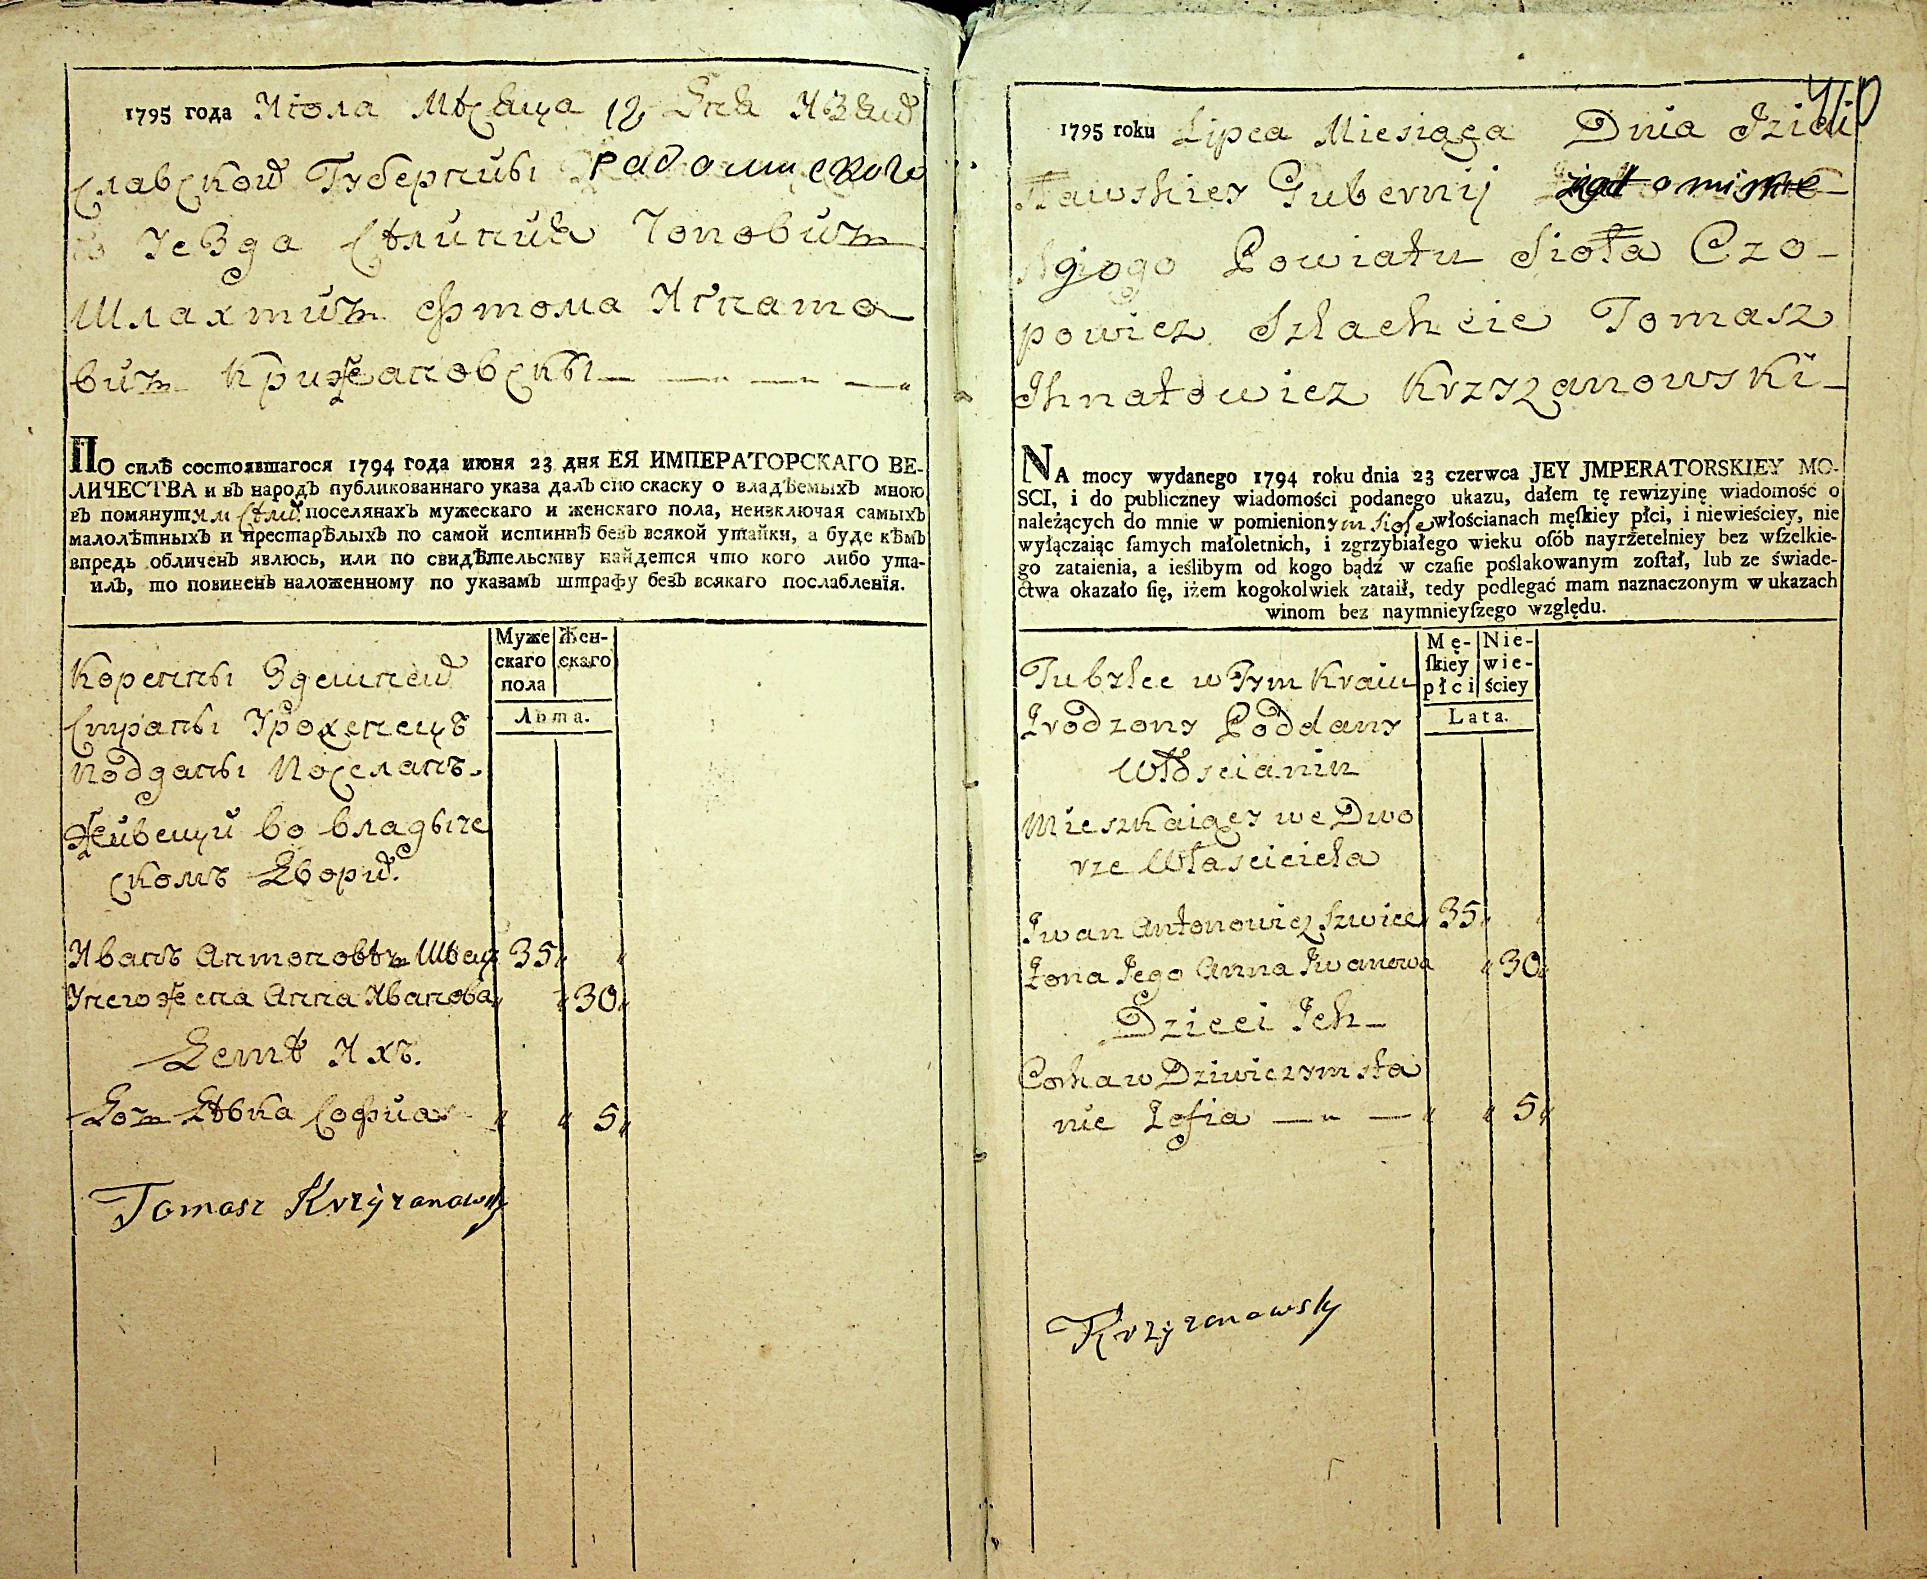 1795 года Июля Мѣсяца 12 Дня Изяй
славской Губерниы Радомиского
Уезда Сѣлиния Чоповичь
Шлахтичь Фтома Игнато
вичь Крижановскы
ПО силѣ состоявшагося 1794 года июня 23 дня ЕЯ ИМПЕРАТОРСКАГО ВЕ-
ЛИЧЕСТВА и въ народъ публикованнаго указа далъ сїю скаску о владѣемыхъ мною
въ помянутым Сѣлй поселянахъ мужескаго и женскаго пола, неизключая самыхъ
малолѣтныхъ и престарѣлыхъ по самой истиннѣ безъ всякой утайки, а буде кѣмъ
впредь обличенъ явлюсь, или по свидѣтельству найдется что кого либо ута-
илъ, то повиненъ наложенному по указамъ штрафу безъ всякаго послабленїя.
Муже Жен-
скаго скаго
пола
Лѣта.
Коренны Здешней
Страны Уроженецъ
Подданы Поселанъ
Живещий во владыче
скомъ Дворй.
Иванъ Антоновѣчь Швец 35
Унего жена Анна Иванова 30
Детѣ Ихъ.
Дочь Дѣвка София 5
Tomasz Krzyżanowsky
40
1795 roku Lipca Miesiąca Dnia Jziai
sławskiey Gubernij
Powiatu Sioła Czo-
powicz Szlachcic Tomasz
Jhnatowicz Krzyzanowski
NA mocy wydanego 1794 roku dnia 23 czerwca JEY JMPERATORSKIEY MO-
SCI, i do publiczney wiadomości podanego ukazu, dałem tę rewizyinę wiadomość o
należących do mnie w pomienionym Siole włościanach męſkiey płci, i niewieściey, nie
wyłączaiąc ſamych małoletnich, i zgrzybiałego wieku oſób nayrżetelniey bez wſzelkie-
go zataienia, a ieślibym od kogo bądź w czaſie poślakowanym zoſtał, lub ze świade-
ctwa okazało ſię, iżem kogokolwiek zataił, tedy podlegać mam naznaczonym w ukazach
winom bez naymnieyſzego względu.
Mę- Nie-
ſkiey wie-
płci ściey
Lata.
Tubylec w Tym Kraiu
Zrodzony Poddany
Włoscianin
Mieszkaiący we Dwo
rze Własciciela
Jwan Antonowicz Szwiec 35
Żona Jego Anna Jwanowa 30
Dzieci Jch
Corka w Dziwiczym sta
nie Zofia 5
Krzyżanowsky